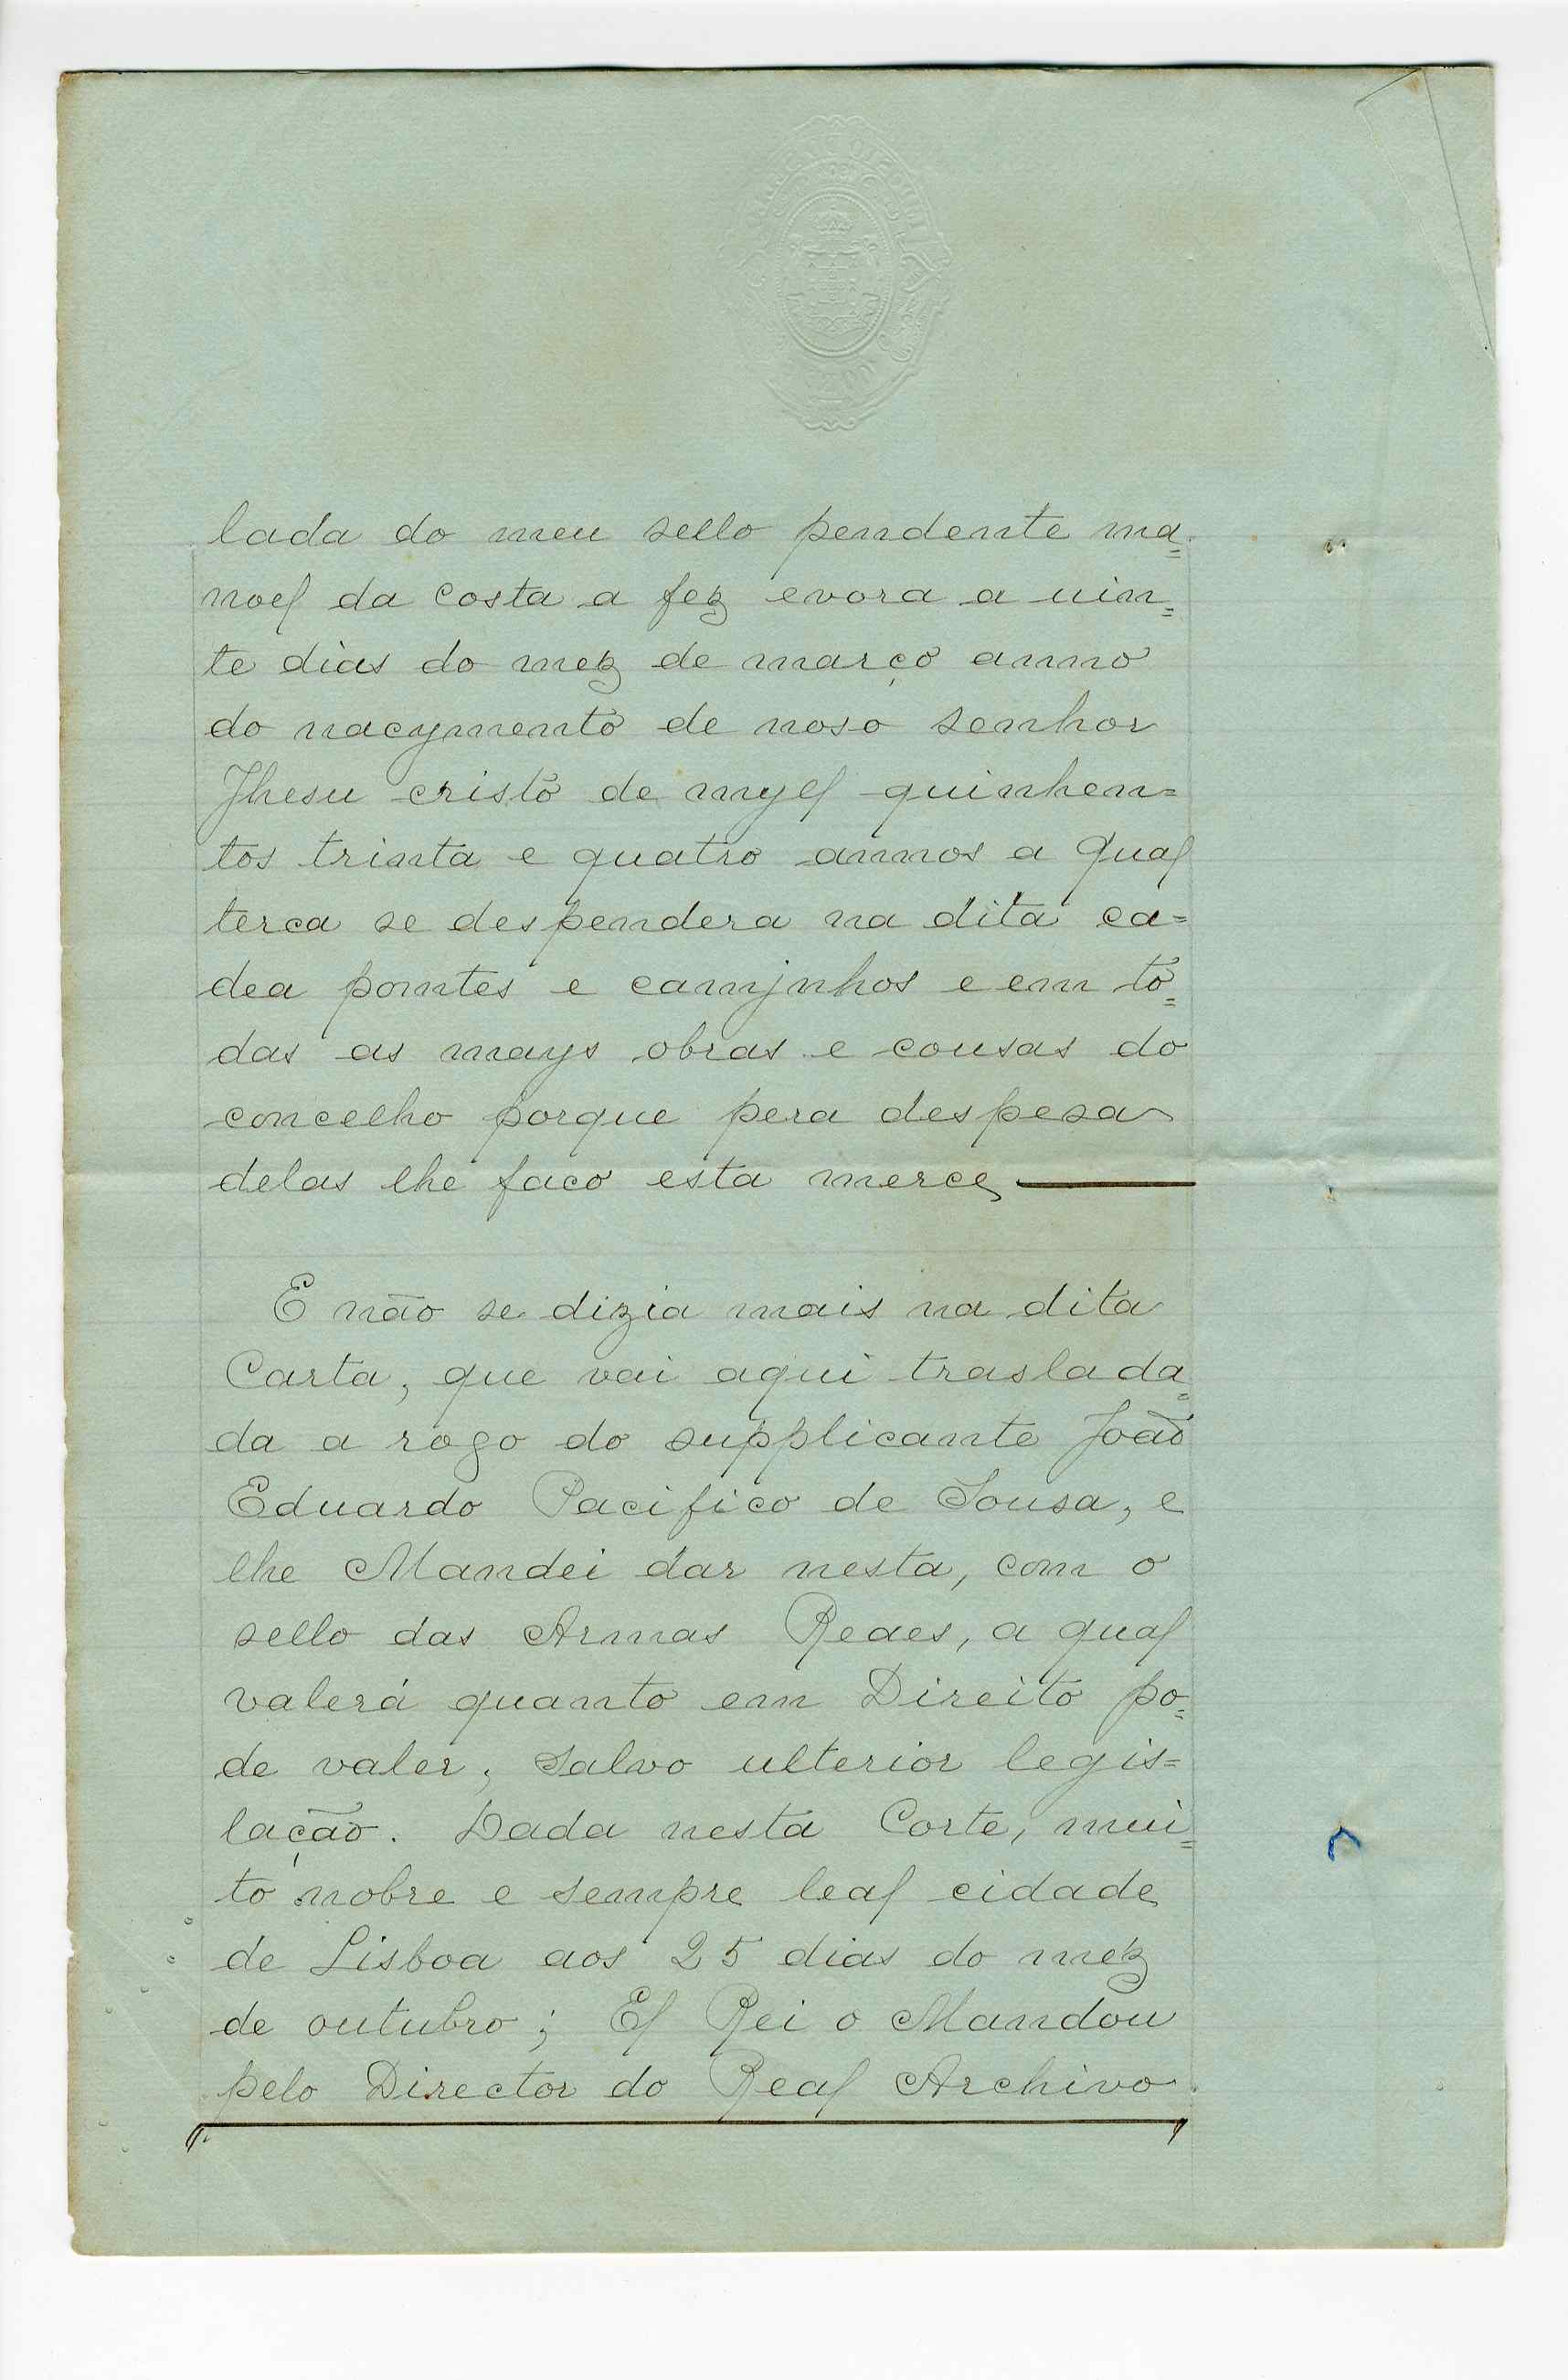 lada do meu sello pendente ma=
noel da costa a fez evora a uin=
te dias do mez de março anno
do nacymento de noso senhor
Jhesu cristo de myel quinhen=
tos trinta e quatro annos a qual
terca se despendera na dita ca=
dea pomtes e camjnhos e em to=
das as mays obras e cousas do
concelho porque pera despesa
delas lhe faco esta merce
E não se dizia mais na dita
Carta, que vai aqui traslada=
da a rogo do supplicante João
Eduardo Pacifico de Sousa, e
lhe Mandei dar nesta, com o
sello das Armas Reaes, a qual
valerá quanto em Direito po=
de valer, salvo ulterior legis=
lação. Dada nesta Corte, mui=
to nobre e sempre leal cidade
de Lisboa aos 25 dias do mez
de outubro; El Rei o Mandou
pelo Director do Real Archivo